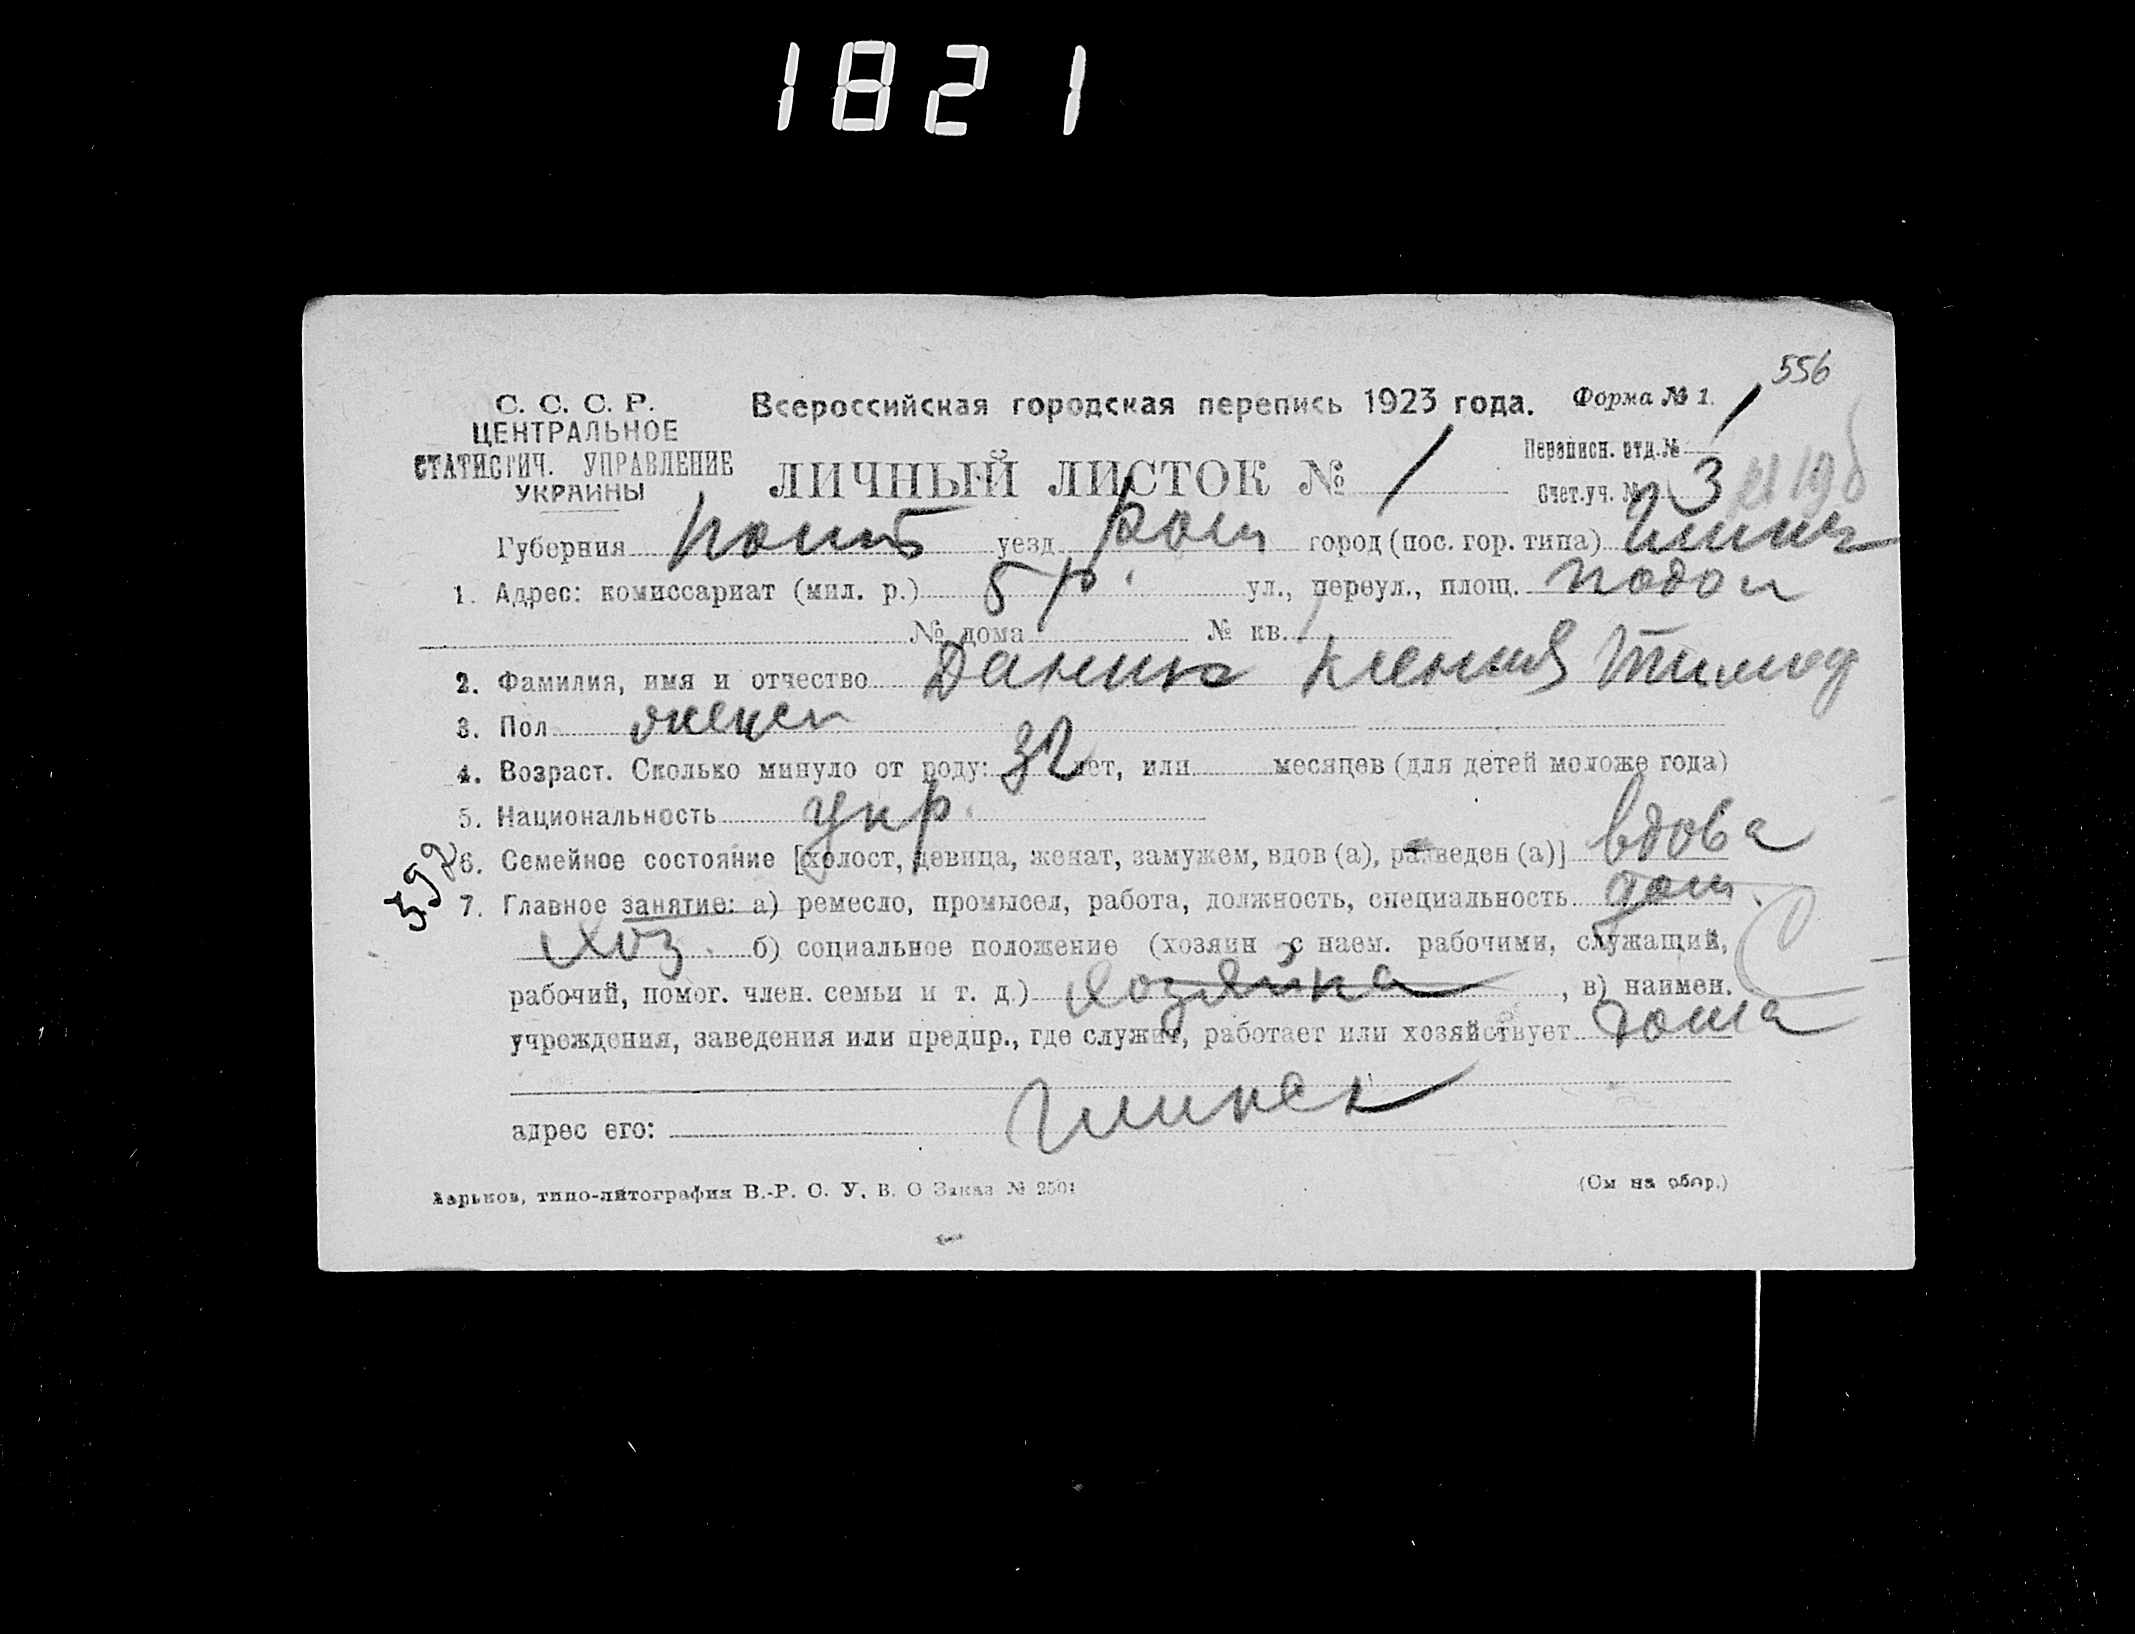 1821
556
С. С. С. Р.
ЦЕНТРАЛЬНОЕ
СТАТИСТИЧ. УПРАВЛЕНИЕ
УКРАИНЫ
Всероссийская городская перепись 1923 года. Форма № 1.
ЛИЧНЫЙ ЛИСТОК № 1
Переписн. отд. № 1
Счет. уч. № 3
Губерния уезд Ром город (пос. гор. типа)
1. Адрес: комиссариат (мил. р.) 5 р. ул., переул., площ. Подол
№ дома № кв.
2. Фамилия, имя и отчество Данико Ксения Тимоф
3. Пол женск
4. Возраст. Сколько минуло от роду: 32 лет, или месяцев (для детей моложе года)
5. Национальность укр.
592
6. Семейное состояние [холост, девица, женат, замужем, вдов (а), разведен (а)] вдова
7. Главное занятие: а) ремесло, промысел, работа, должность, специальность дом.
хоз. б) социальное положение (хозяин с наем. рабочими, служащий,
рабочий, помог. член. семьи и т. д.) хозяйка, в) наимен.
учреждения, заведения или предпр., где служит, работает или хозяйствует дома
адрес его: Глинск
Харьков, типо-литография В.-Р. С. У. В. О Заказ № 2501
(См на обор.)